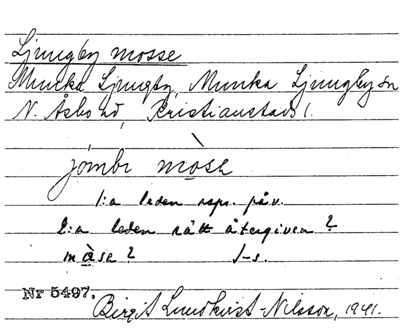 Ljungby mosse
Munka Ljungby, Munka Ljungby sn
N. Åsbo hd, Kristianstads l.
jómbı mòse
1:a leden rspr. påv.
2:a leden rätt återgiven?
måse? J-s.
Nr 5497.
Birgit Lundkvist-Nilsson, 1941.